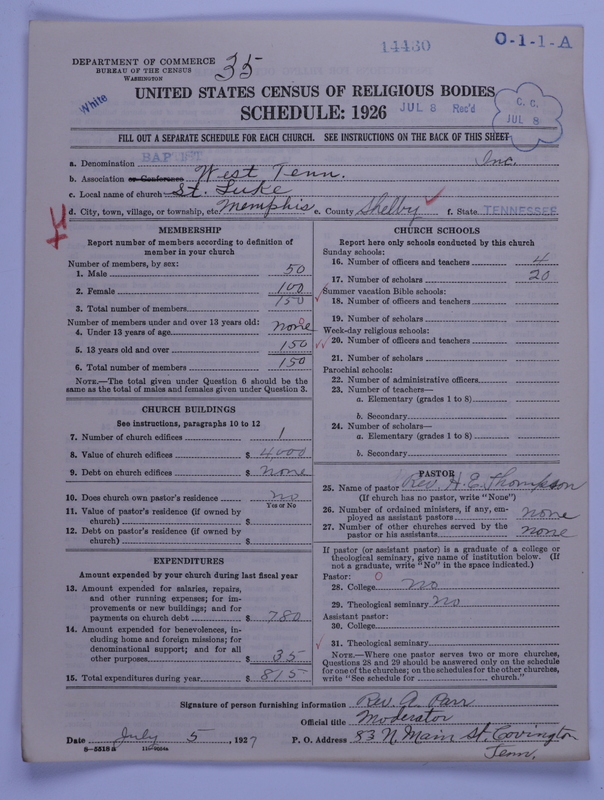 14430
O-1-1-A
DEPARTMENT OF COMMERCE
BUREAU OF THE CENSUS
WASHINGTON
35
White
UNITED STATES CENSUS OF RELIGIOUS BODIES
SCHEDULE: 1926
JUL 8 Rec'd
C. C.
JUL 8
FILL OUT A SEPARATE SCHEDULE FOR EACH CHURCH. SEE INSTRUCTIONS ON THE BACK OF THIS SHEET
a. Denomination BAPTIST Inc.
b. Association or Conference West Tenn.
c. Local name of church St. Luke
d. City, town, village, or township, etc. Memphis e. County Shelby f. State TENNESSEE
MEMBERSHIP
Report number of members according to definition of
member in your church
Number of members, by sex:
1. Male 50
2. Female 100
3. Total number of members 150
Number of members under and over 13 years old:
4. Under 13 years of age none
5. 13 years old and over 150
6. Total number of members 150
NOTE.—The total given under Question 6 should be the
same as the total of males and females given under Question 3.
CHURCH BUILDINGS
See instructions, paragraphs 10 to 12
7. Number of church edifices 1
8. Value of church edifices $ 4,000
9. Debt on church edifices $ none
10. Does church own pastor's residence no
Yes or No
11. Value of pastor's residence (if owned by
church) $
12. Debt on pastor's residence (if owned by
church) $
EXPENDITURES
Amount expended by your church during last fiscal year
13. Amount expended for salaries, repairs,
and other running expenses; for im-
provements or new buildings; and for
payments on church debt $ 780
14. Amount expended for benevolences, in-
cluding home and foreign missions; for
denominational support; and for all
other purposes $ 35
15. Total expenditures during year $ 815
CHURCH SCHOOLS
Report here only schools conducted by this church
Sunday schools:
16. Number of officers and teachers 4
17. Number of scholars 20
Summer vacation Bible schools:
18. Number of officers and teachers
19. Number of scholars
Week-day religious schools:
20. Number of officers and teachers
21. Number of scholars
Parochial schools:
22. Number of administrative officers
23. Number of teachers—
a. Elementary (grades 1 to 8)
b. Secondary
24. Number of scholars—
a. Elementary (grades 1 to 8)
b. Secondary
PASTOR
25. Name of pastor Rev. H. E. Thompson
(If church has no pastor, write "None")
26. Number of ordained ministers, if any, em-
ployed as assistant pastors none
27. Number of other churches served by the
pastor or his assistants none
If pastor (or assistant pastor) is a graduate of a college or
theological seminary, give name of institution below. (If
not a graduate, write "No" in the space indicated.)
Pastor:
28. College no
29. Theological seminary no
Assistant pastor:
30. College
31. Theological seminary
NOTE.—Where one pastor serves two or more churches,
Questions 28 and 29 should be answered only on the schedule
for one of the churches; on the schedules for the other churches,
write "See schedule for church."
Signature of person furnishing information Rev. A. Parr
Official title Moderator
Date July 5, 1927 P. O. Address 83 N. Main St. Covington
Tenn.
8-5518a